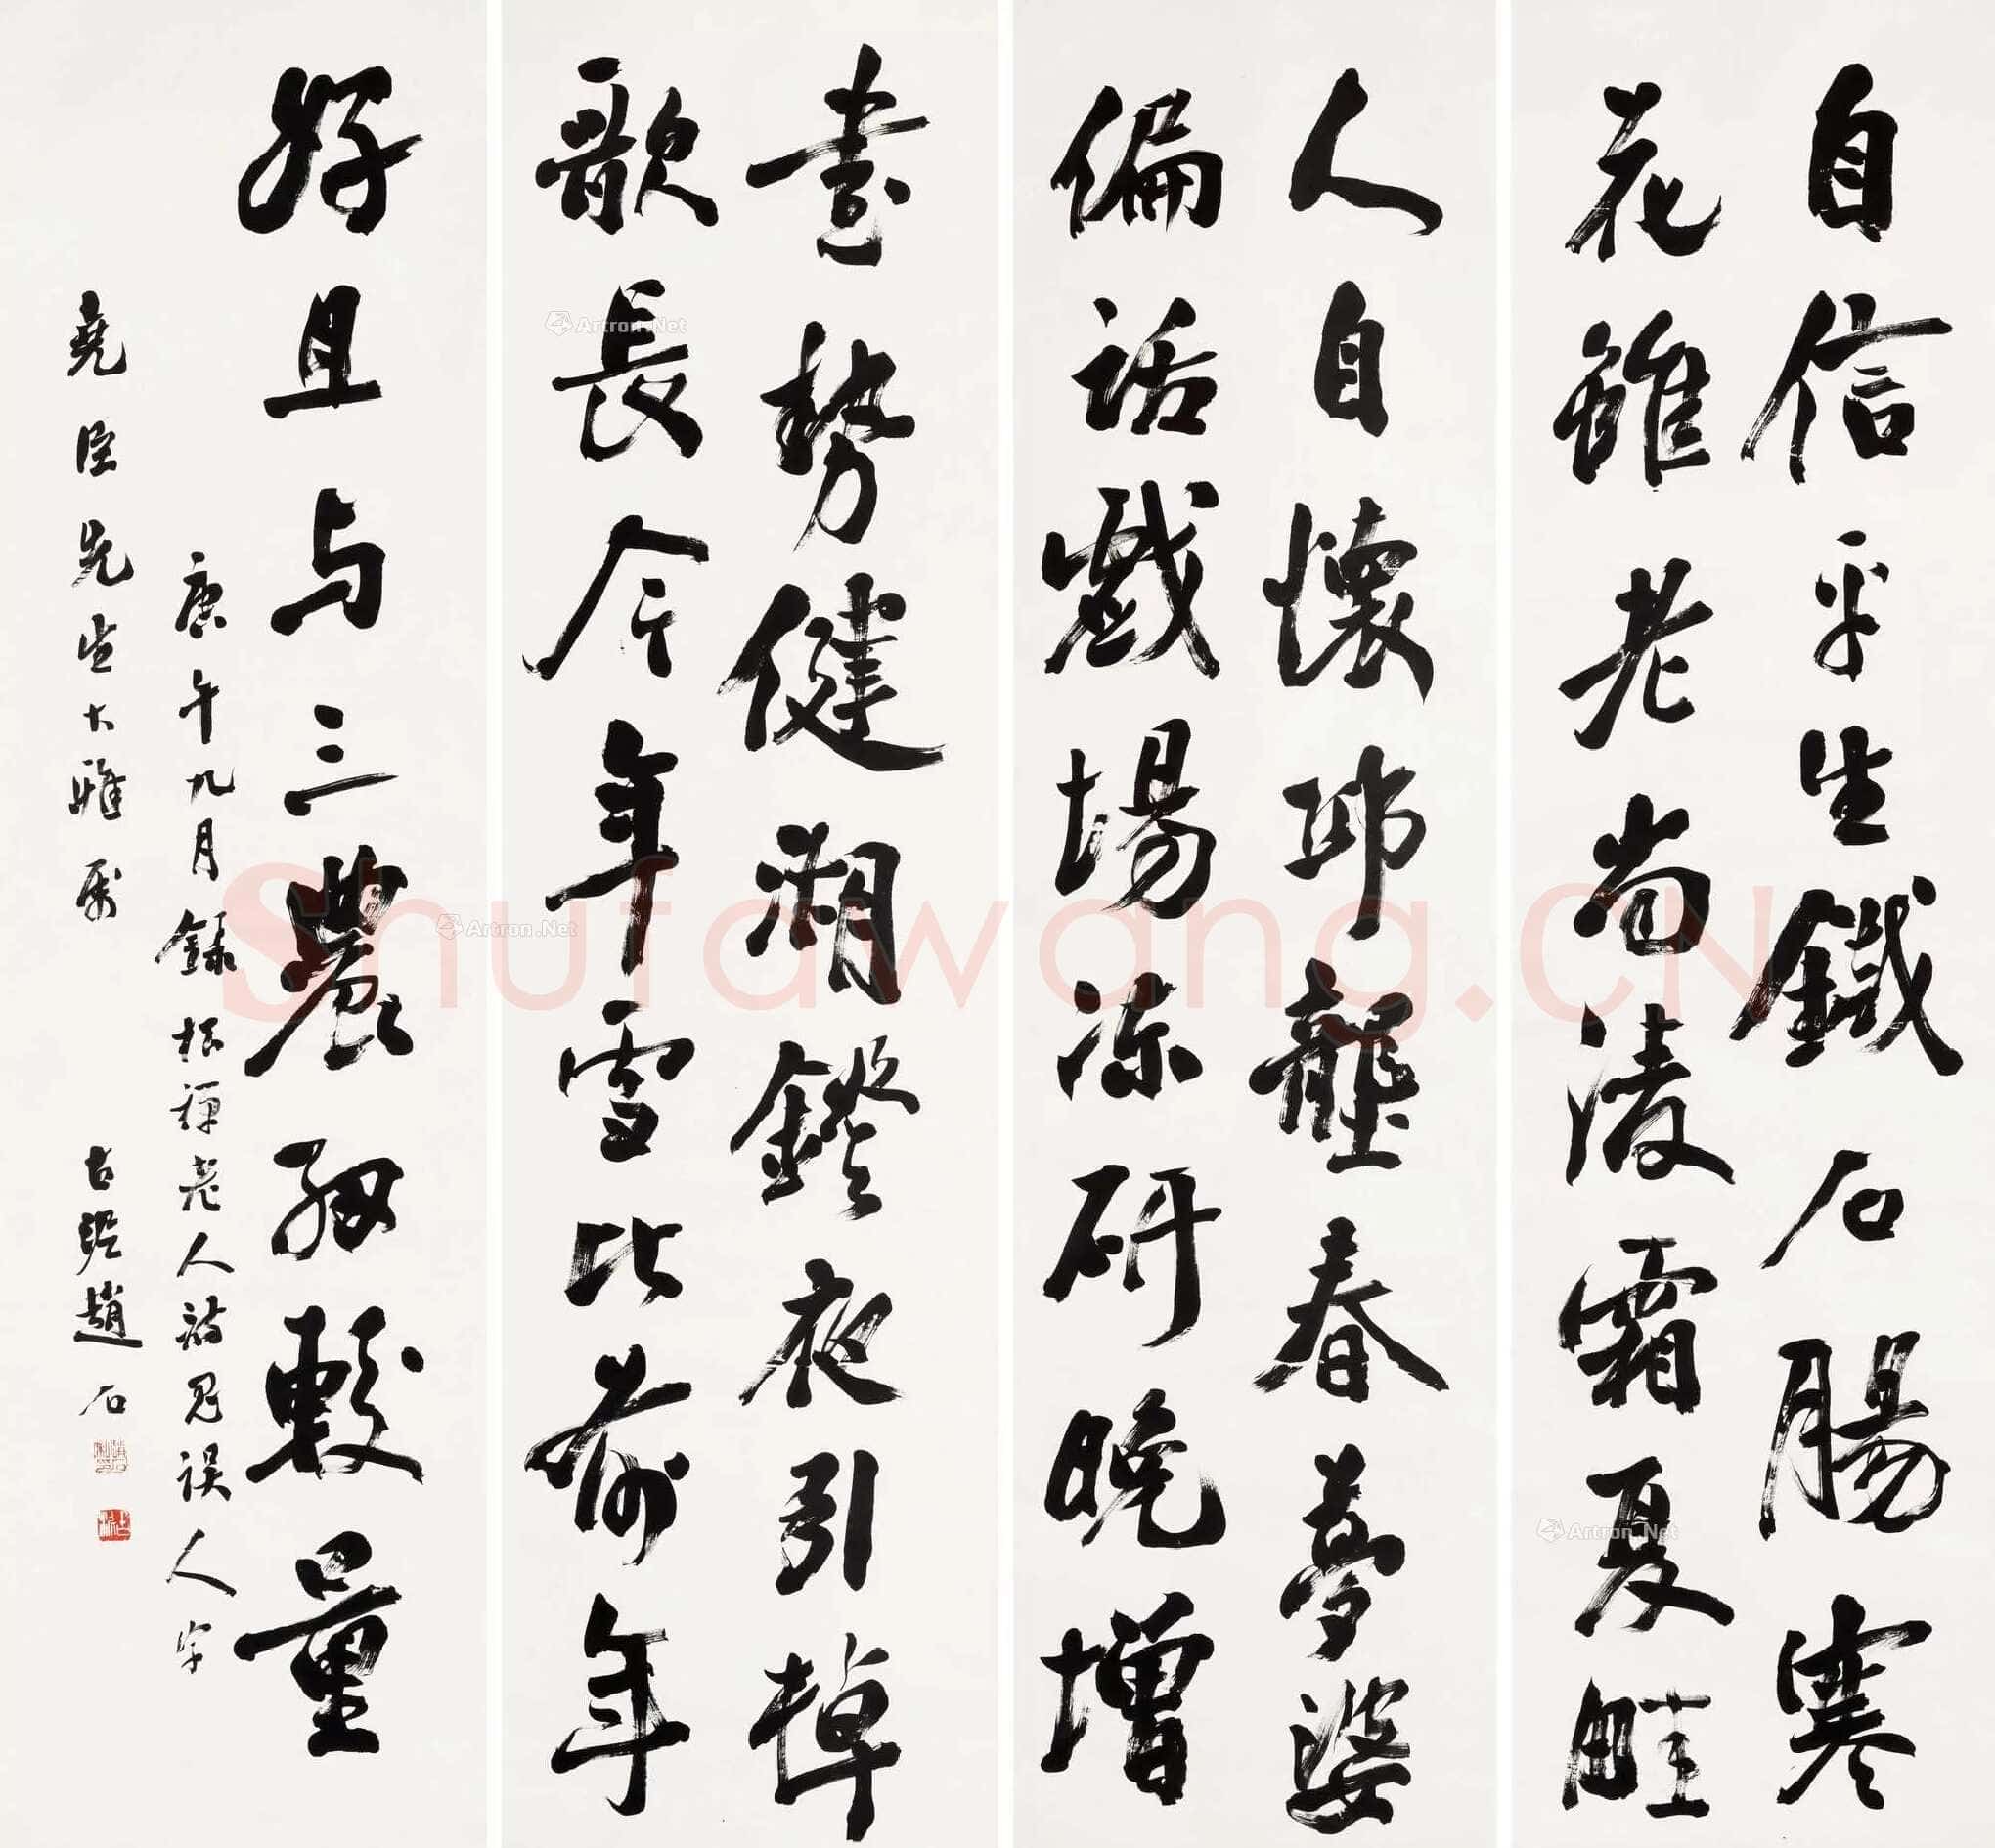 自信平生鐵石腸寒
花雖老尚淩霜夏畦
人自懷邛壟春夢婆
偏話戲場凍研晚增
書勢健湖鐙夜引棹
歌長今年雪比前年
好且与三農細較量
庚午九月録松禪老人詩誤人字
堯臣先生大雅属 古泥趙石
Shufawang.CN
Artron.Net
Artron.Net
Artron.Net